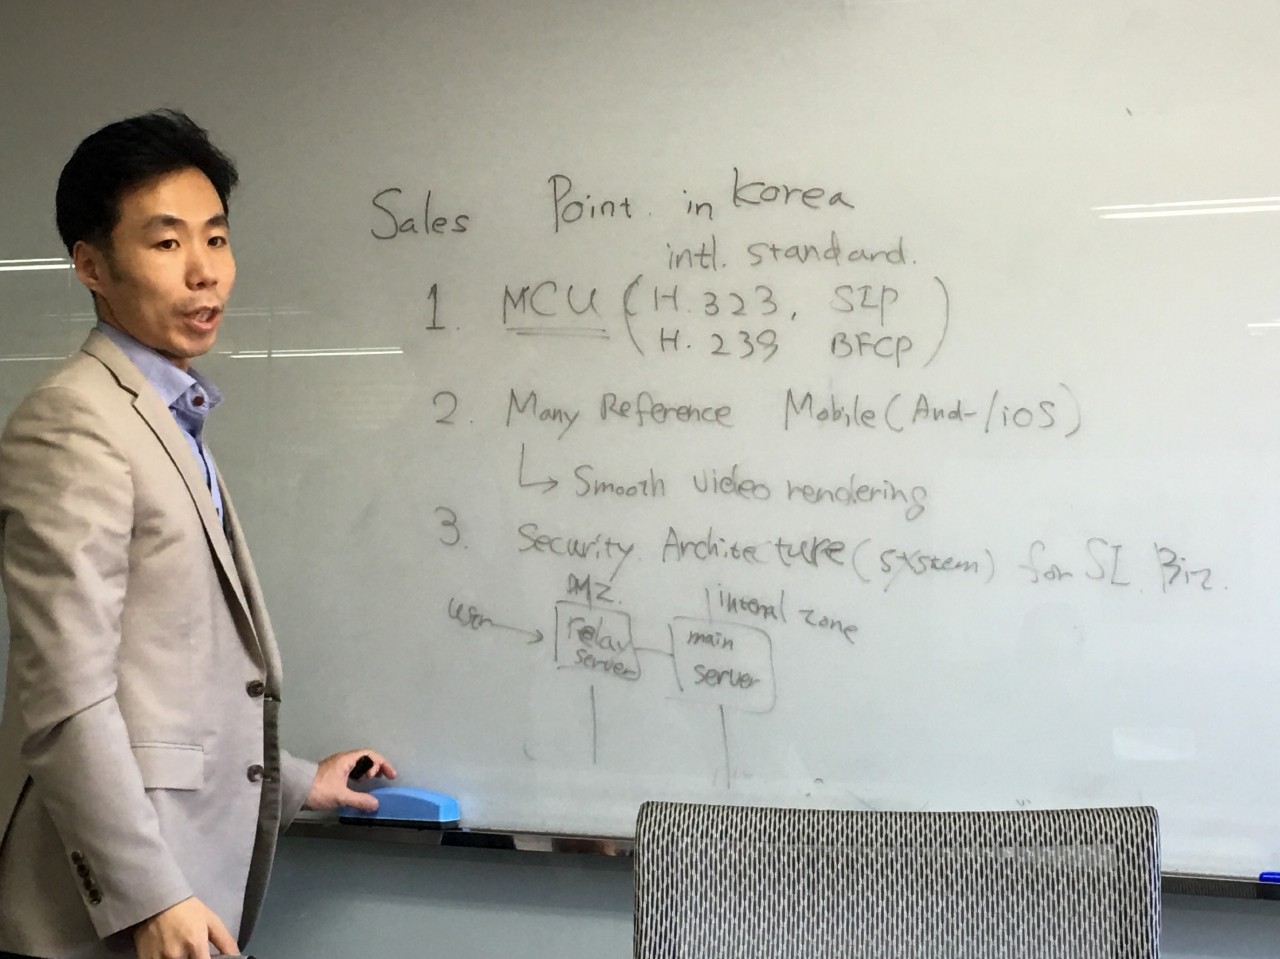 Sales Point. in Korea
intl. standard.
1. MCU (H.323, SIP
H.239 BFCP)
2. Many Reference Mobile (And-/iOS)
↳ Smooth video rendering
3. Security Architecture (system) for SI Biz.
DMZ.
internal zone
user
relay
server
main
server